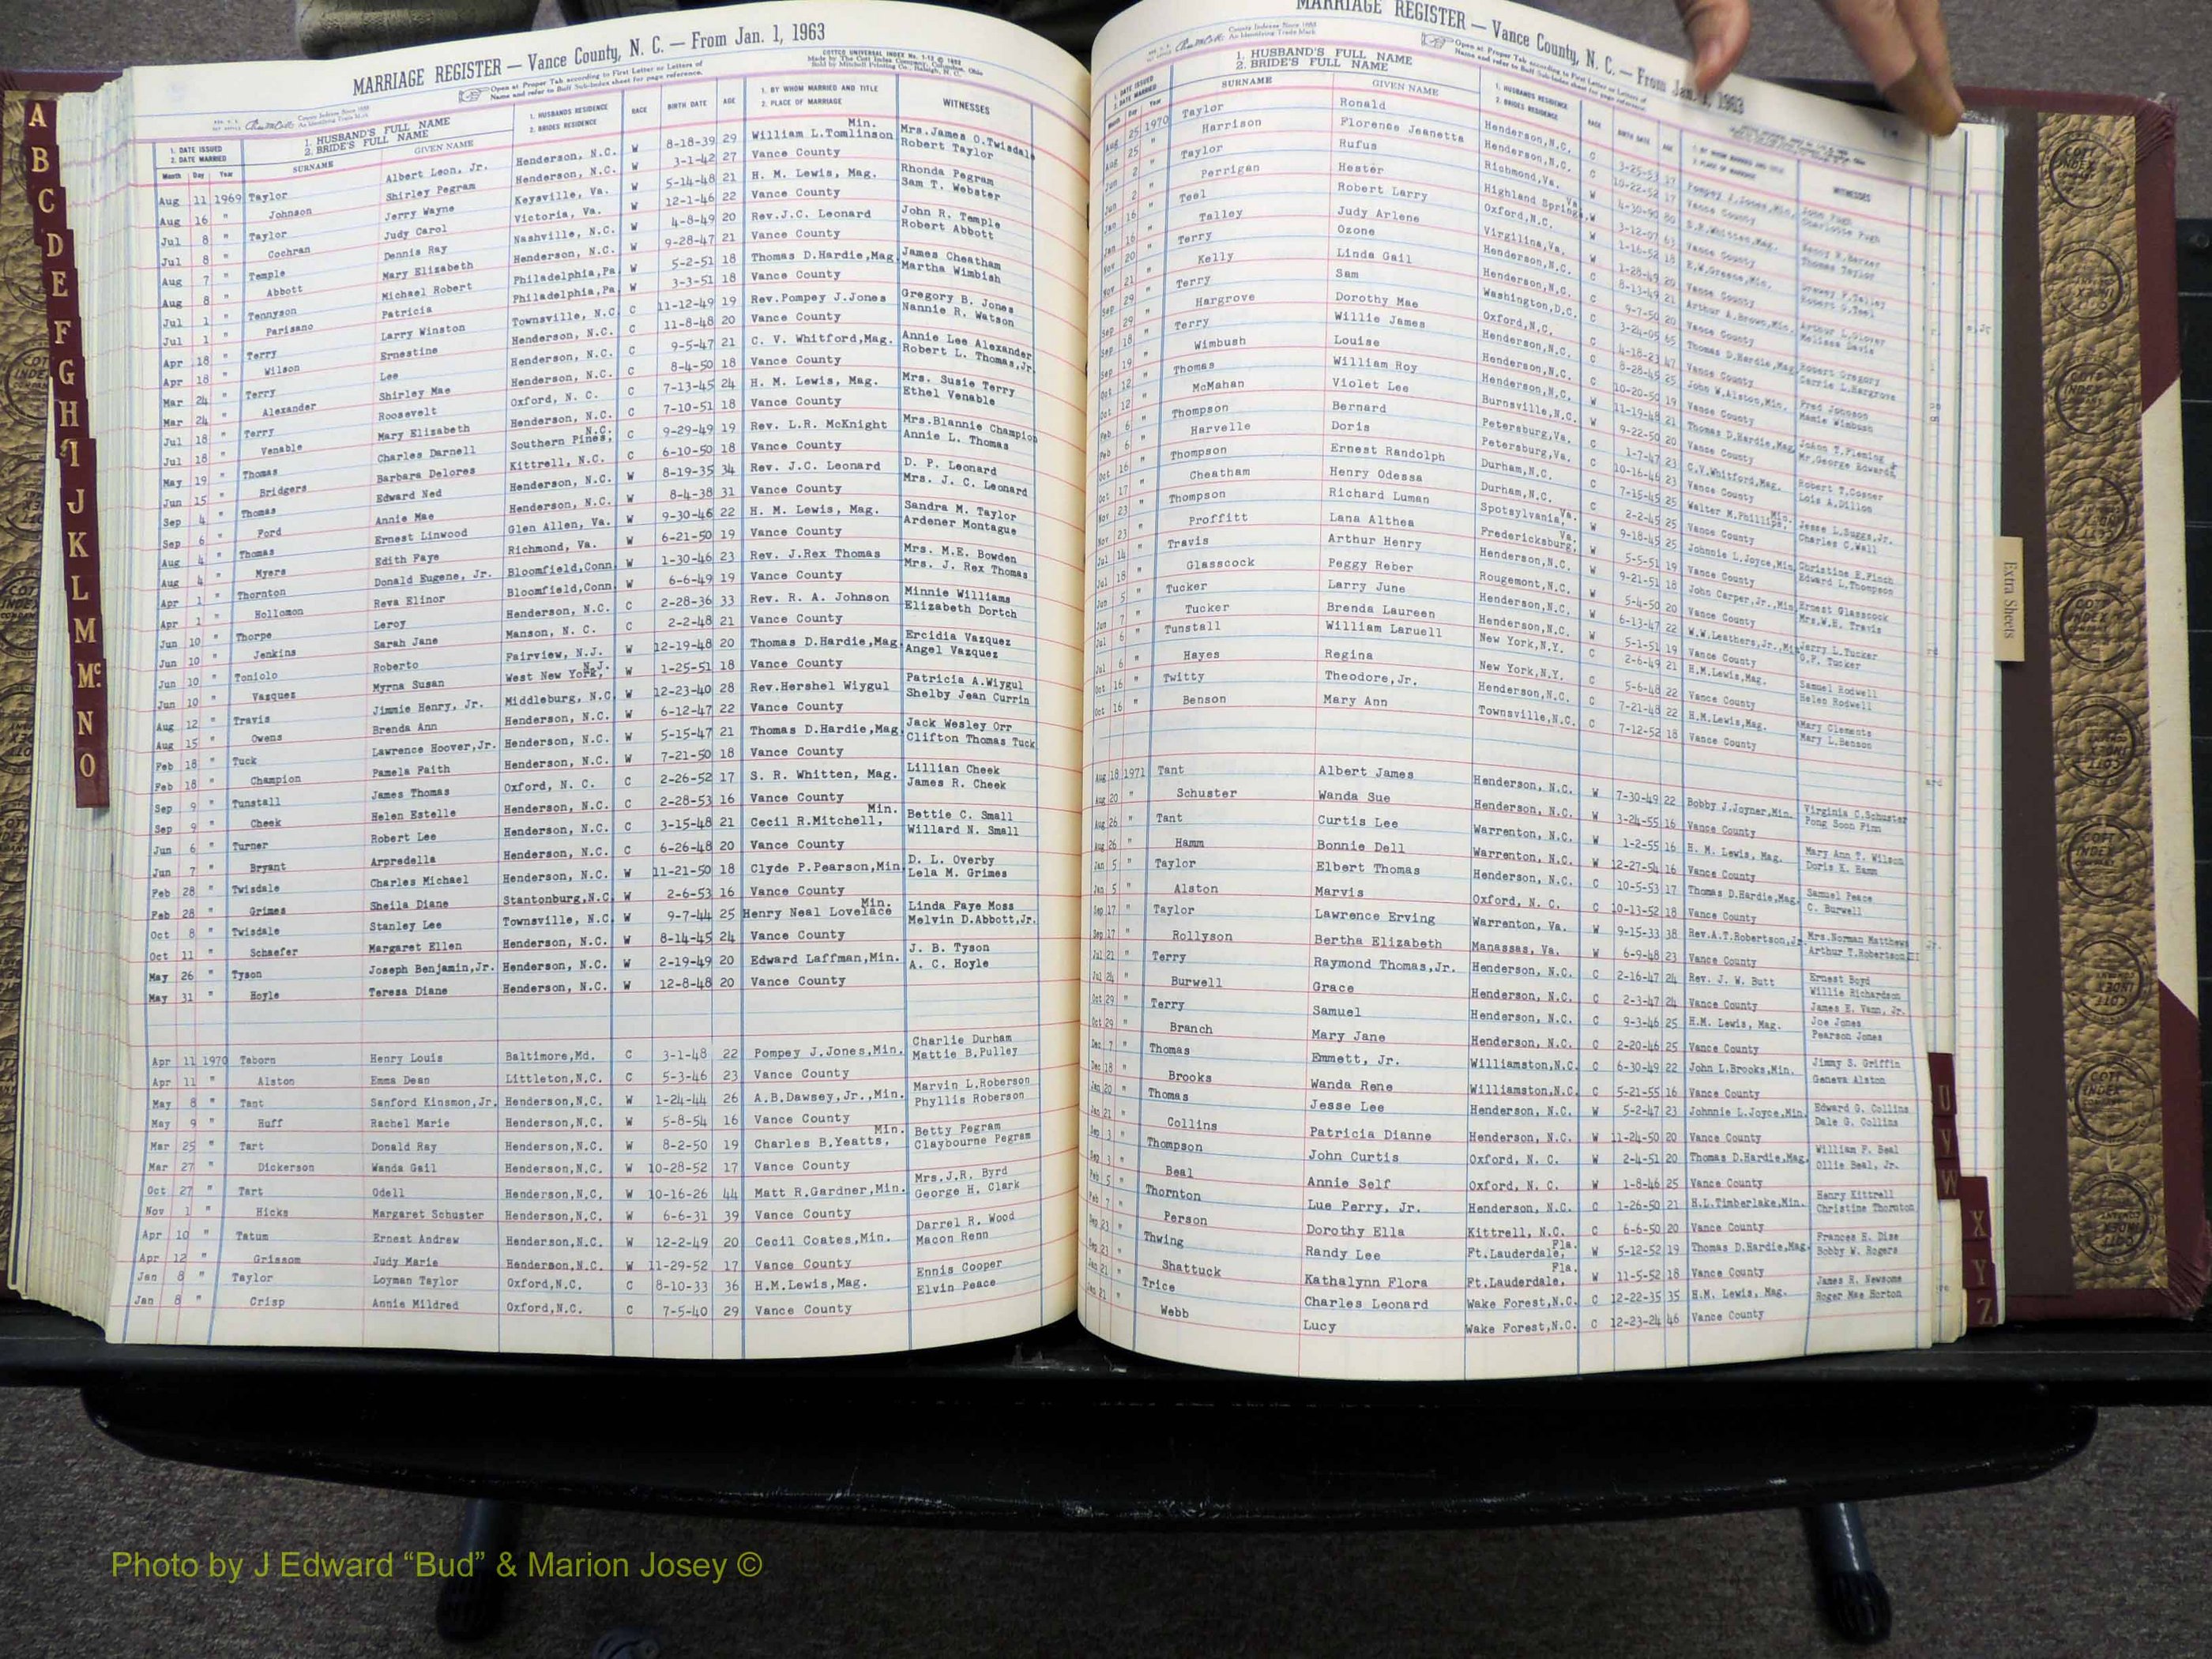 MARRIAGE REGISTER — Vance County, N. C. — From Jan. 1, 1963
Open at Proper Tab according to First Letter or Letters of
Name and refer to Buff Sub-Index sheet for page reference.
COTTCO UNIVERSAL INDEX
1. DATE ISSUED 2. DATE MARRIED Month Day Year 1. HUSBAND'S FULL NAME 2. BRIDE'S FULL NAME SURNAME GIVEN NAME 1. HUSBANDS RESIDENCE 2. BRIDES RESIDENCE RACE BIRTH DATE AGE 1. BY WHOM MARRIED AND TITLE 2. PLACE OF MARRIAGE WITNESSES
Aug 11 1969 Taylor Albert Leon, Jr. Henderson, N.C. W 8-18-39 29 William L.Tomlinson Min. Mrs.James O.Twisdale
Aug 16 " Johnson Shirley Pegram Henderson, N.C. W 3-1-42 27 Vance County Robert Taylor
Jul 8 " Taylor Jerry Wayne Keysville, Va. W 5-14-48 21 H. M. Lewis, Mag. Rhonda Pegram
Jul 8 " Cochran Judy Carol Victoria, Va. W 12-1-46 22 Vance County Sam T. Webster
Aug 7 " Temple Dennis Ray Nashville, N.C. W 4-8-49 20 Rev.J.C. Leonard John R. Temple
Aug 8 " Abbott Mary Elizabeth Henderson, N.C. W 9-28-47 21 Vance County Robert Abbott
Jul 1 " Tennyson Michael Robert Philadelphia,Pa W 5-2-51 18 Thomas D.Hardie,Mag James Cheatham
Jul 1 " Parisano Patricia Philadelphia,Pa W 3-3-51 18 Vance County Martha Wimbish
Apr 18 " Terry Larry Winston Townsville, N.C C 11-12-49 19 Rev.Pompey J.Jones Gregory B. Jones
Apr 18 " Wilson Ernestine Henderson, N.C. C 11-8-48 20 Vance County Nannie R. Watson
Mar 24 " Terry Lee Henderson, N.C. C 9-5-47 21 C. V. Whitford,Mag. Annie Lee Alexander
Mar 24 " Alexander Shirley Mae Henderson, N.C. C 8-4-50 18 Vance County Robert L. Thomas,Jr.
Jul 18 " Terry Roosevelt Oxford, N. C. C 7-13-45 24 H. M. Lewis, Mag. Mrs. Susie Terry
Jul 18 " Venable Mary Elizabeth Henderson, N.C. C 7-10-51 18 Vance County Ethel Venable
May 19 " Thomas Charles Darnell Southern Pines, N.C. C 9-29-49 19 Rev. L.R. McKnight Mrs.Blannie Champion
Jun 15 " Bridgers Barbara Delores Kittrell, N.C. C 6-10-50 18 Vance County Annie L. Thomas
Sep 4 " Thomas Edward Ned Henderson, N.C. W 8-19-35 34 Rev. J.C. Leonard D. P. Leonard
Sep 6 " Ford Annie Mae Henderson, N.C. W 8-4-38 31 Vance County Mrs. J. C. Leonard
Aug 4 " Thomas Ernest Linwood Glen Allen, Va. W 9-30-46 22 H. M. Lewis, Mag. Sandra M. Taylor
Aug 4 " Myers Edith Faye Richmond, Va. W 6-21-50 19 Vance County Ardener Montague
Apr 1 " Thornton Donald Eugene, Jr. Bloomfield,Conn W 1-30-46 23 Rev. J.Rex Thomas Mrs. M.E. Bowden
Apr 1 " Hollomon Reva Elinor Bloomfield,Conn W 6-6-49 19 Vance County Mrs. J. Rex Thomas
Jun 10 " Thorpe Leroy Henderson, N.C. C 2-28-36 33 Rev. R. A. Johnson Minnie Williams
Jun 10 " Jenkins Sarah Jane Manson, N. C. C 2-2-48 21 Vance County Elizabeth Dortch
Jun 10 " Toniolo Roberto Fairview, N.J. W 12-19-48 20 Thomas D.Hardie,Mag Ercidia Vazquez
Jun 10 " Vazquez Myrna Susan West New York, N.J. W 1-25-51 18 Vance County Angel Vazquez
Aug 12 " Travis Jimmie Henry, Jr. Middleburg, N.C W 12-23-40 28 Rev.Hershel Wiygul Patricia A.Wiygul
Aug 15 " Owens Brenda Ann Henderson, N.C. W 6-12-47 22 Vance County Shelby Jean Currin
Feb 18 " Tuck Lawrence Hoover,Jr. Henderson, N.C. W 5-15-47 21 Thomas D.Hardie,Mag Jack Wesley Orr
Feb 18 " Champion Pamela Faith Henderson, N.C. W 7-21-50 18 Vance County Clifton Thomas Tuck
Sep 9 " Tunstall James Thomas Oxford, N. C. C 2-26-52 17 S. R. Whitten, Mag. Lillian Cheek
Sep 9 " Cheek Helen Estelle Henderson, N.C. C 2-28-53 16 Vance County James R. Cheek
Jun 6 " Turner Robert Lee Henderson, N.C. C 3-15-48 21 Cecil R.Mitchell, Min. Bettie C. Small
Jun 7 " Bryant Arpredella Henderson, N.C. C 6-26-48 20 Vance County Willard N. Small
Feb 28 " Twisdale Charles Michael Henderson, N.C. W 11-21-50 18 Clyde P.Pearson,Min D. L. Overby
Feb 28 " Grimes Sheila Diane Stantonburg,N.C W 2-6-53 16 Vance County Lela M. Grimes
Oct 8 " Twisdale Stanley Lee Townsville, N.C W 9-7-44 25 Henry Neal Lovelace Min. Linda Faye Moss
Oct 11 " Schaefer Margaret Ellen Henderson, N.C. W 8-14-45 24 Vance County Melvin D.Abbott,Jr.
May 26 " Tyson Joseph Benjamin,Jr. Henderson, N.C. W 2-19-49 20 Edward Laffman,Min. J. B. Tyson
May 31 " Hoyle Teresa Diane Henderson, N.C. W 12-8-48 20 Vance County A. C. Hoyle
Apr 11 1970 Taborn Henry Louis Baltimore,Md. C 3-1-48 22 Pompey J.Jones,Min. Charlie Durham
Apr 11 " Alston Emma Dean Littleton,N.C. C 5-3-46 23 Vance County Mattie B.Pulley
May 8 " Tant Sanford Kinsmon,Jr. Henderson,N.C. W 1-24-44 26 A.B.Dawsey,Jr.,Min. Marvin L.Roberson
May 9 " Huff Rachel Marie Henderson,N.C. W 5-8-54 16 Vance County Phyllis Roberson
Mar 25 " Tart Donald Ray Henderson,N.C. W 8-2-50 19 Charles B.Yeatts, Min. Betty Pegram
Mar 27 " Dickerson Wanda Gail Henderson,N.C. W 10-28-52 17 Vance County Claybourne Pegram
Oct 27 " Tart Odell Henderson,N.C. W 10-16-26 44 Matt R.Gardner,Min. Mrs.J.R. Byrd
Nov 1 " Hicks Margaret Schuster Henderson,N.C. W 6-6-31 39 Vance County George H. Clark
Apr 10 " Tatum Ernest Andrew Henderson,N.C. W 12-2-49 20 Cecil Coates,Min. Darrel R. Wood
Apr 12 " Grissom Judy Marie Henderson,N.C. W 11-29-52 17 Vance County Macon Renn
Jan 8 " Taylor Loyman Taylor Oxford,N.C. C 8-10-33 36 H.M.Lewis,Mag. Ennis Cooper
Jan 8 " Crisp Annie Mildred Oxford,N.C. C 7-5-40 29 Vance County Elvin Peace
MARRIAGE REGISTER — Vance County, N. C. — From Jan. 1, 1963
Open at Proper Tab according to First Letter or Letters of
Name and refer to Buff Sub-Index sheet for page reference.
1. DATE ISSUED 2. DATE MARRIED 1. HUSBAND'S FULL NAME 2. BRIDE'S FULL NAME SURNAME GIVEN NAME 1. HUSBANDS RESIDENCE 2. BRIDES RESIDENCE RACE BIRTH DATE AGE WITNESSES
Aug 25 1970 Taylor Ronald Henderson,N.C. C 3-25-53 17 Pompey J.Jones,Min. John Pugh
Aug 25 " Harrison Florence Jeanetta Henderson,N.C. C 10-22-52 17 Vance County Charlotte Pugh
Jun 2 " Taylor Rufus Richmond,Va. C 4-30-90 80 S.R.Whitten,Mag.
Jun 2 " Perrigan Hester Highland Springs, Va. W 3-12-07 63 Vance County Thomas Taylor
Jan 16 " Teel Robert Larry Oxford,N.C. W 1-16-52 18 E.W.Greene,Min. Talley
Jan 16 " Talley Judy Arlene Virgilina,Va. W 1-28-49 20 Vance County Robert G.Teel
Nov 20 " Terry Ozone Henderson,N.C. C 8-13-49 21 Arthur A.Brown,Min. Arthur L.Glover
Nov 21 " Kelly Linda Gail Henderson,N.C. C 9-7-50 20 Vance County Melissa Davis
Sep 29 " Terry Sam Washington,D.C. C 3-24-05 65 Thomas D.Hardie,Mag Robert Gregory
Sep 29 " Hargrove Dorothy Mae Oxford,N.C. C 4-18-23 47 Vance County Carrie L.Hargrove
Sep 18 " Terry Willie James Henderson,N.C. C 8-28-45 25 John W.Alston,Min. Fred Johnson
Sep 19 " Wimbush Louise Henderson,N.C. C 10-20-50 19 Vance County Mamie Wimbush
Oct 12 " Thomas William Roy Henderson,N.C. W 11-19-48 21 Thomas D.Hardie,Mag JoAnn T.Fleming &
Oct 12 " McMahan Violet Lee Burnsville,N.C. W 9-22-50 20 Vance County Mr.George Edwards
Feb 6 " Thompson Bernard Petersburg,Va. C 1-7-47 23 C.V.Whitford,Mag. Robert T.Cosner
Feb 6 " Harvelle Doris Petersburg,Va. C 10-16-46 23 Vance County Lois A.Dillon
Oct 16 " Thompson Ernest Randolph Durham,N.C. C 7-15-45 25 Walter M.Phillips, Min. Jesse L.Suggs,Jr.
Oct 17 " Cheatham Henry Odessa Durham,N.C. C 2-2-45 25 Vance County Charles C.Wall
Nov 23 " Thompson Richard Luman Spotsylvania, Va. W 9-18-45 25 Johnnie L.Joyce,Min. Christine E.Finch
Nov 23 " Proffitt Lana Althea Fredericksburg, Va. W 5-5-51 19 Vance County Edward L.Thompson
Jul 14 " Travis Arthur Henry Henderson,N.C. W 9-21-51 18 John Carper,Jr.,Min Ernest Glasscock
Jul 18 " Glasscock Peggy Reber Rougemont,N.C. W 5-4-50 20 Vance County Mrs.W.H. Travis
Jun 5 " Tucker Larry June Henderson,N.C. W 6-13-47 22 W.W.Leathers,Jr.,Min Jerry L.Tucker
Jun 7 " Tucker Brenda Laureen Henderson,N.C. W 5-1-51 19 Vance County O.P. Tucker
Jul 6 " Tunstall William Laruell New York,N.Y. C 2-6-49 21 H.M.Lewis,Mag. Samuel Rodwell
Jul 6 " Hayes Regina New York,N.Y. C 5-6-48 22 Vance County Helen Rodwell
Oct 16 " Twitty Theodore,Jr. Henderson,N.C. C 7-21-48 22 H.M.Lewis,Mag. Mary Clements
Oct 16 " Benson Mary Ann Townsville,N.C. C 7-12-52 18 Vance County Mary L.Benson
Aug 18 1971 Tant Albert James Henderson, N.C. W 7-30-49 22 Bobby J.Joyner,Min. Virginia C.Schuster
Aug 20 " Schuster Wanda Sue Henderson, N.C. W 3-24-55 16 Vance County Pong Soon Finn
Aug 26 " Tant Curtis Lee Warrenton, N.C. W 1-2-55 16 H. M. Lewis, Mag. Mary Ann T. Wilson
Aug 26 " Hamm Bonnie Dell Warrenton, N.C. W 12-27-54 16 Vance County Doris K. Hamm
Jan 5 " Taylor Elbert Thomas Henderson, N.C. C 10-5-53 17 Thomas D.Hardie,Mag. Samuel Peace
Jan 5 " Alston Marvis Oxford, N. C. C 10-13-52 18 Vance County C. Burwell
Sep 17 " Taylor Lawrence Erving Warrenton, Va. W 9-15-33 38 Rev.A.T.Robertson,Jr. Mrs.Norman Matthews
Sep 17 " Rollyson Bertha Elizabeth Manassas, Va. W 6-9-48 23 Vance County Arthur T.Robertson,III
Jul 21 " Terry Raymond Thomas,Jr. Henderson, N.C. C 2-16-47 24 Rev. J. W. Butt Ernest Boyd
Jul 24 " Burwell Grace Henderson, N.C. C 2-3-47 24 Vance County Willie Richardson
James E. Vann, Jr.
Oct 29 " Terry Samuel Henderson, N.C. C 9-3-46 25 H.M. Lewis, Mag. Joe Jones
Oct 29 " Branch Mary Jane Henderson, N.C. C 2-20-46 25 Vance County Pearson Jones
Dec 7 " Thomas Emmett, Jr. Williamston,N.C. C 6-30-49 22 John L.Brooks,Min. Jimmy S. Griffin
Dec 18 " Brooks Wanda Rene Williamston,N.C. C 5-21-55 16 Vance County Geneva Alston
Jan 20 " Thomas Jesse Lee Henderson, N.C. W 5-2-47 23 Johnnie L.Joyce,Min. Edward G. Collins
Jan 21 " Collins Patricia Dianne Henderson, N.C. W 11-24-50 20 Vance County Dale G. Collins
Sep 3 " Thompson John Curtis Oxford, N. C. W 2-4-51 20 Thomas D.Hardie,Mag. William F. Beal
Sep 3 " Beal Annie Self Oxford, N. C. W 1-8-46 25 Vance County Ollie Beal, Jr.
Feb 5 " Thornton Lue Perry, Jr. Henderson, N.C. C 1-26-50 21 H.L.Timberlake,Min. Henry Kittrell
Feb 7 " Person Dorothy Ella Kittrell, N.C. C 6-6-50 20 Vance County Christine Thornton
Sep 23 " Thwing Randy Lee Ft.Lauderdale, Fla. W 5-12-52 19 Thomas D.Hardie,Mag. Frances H. Dise
Sep 23 " Shattuck Kathalynn Flora Ft.Lauderdale, Fla. W 11-5-52 18 Vance County Bobby W. Rogers
Jan 21 " Trice Charles Leonard Wake Forest,N.C. C 12-22-35 35 H.M. Lewis, Mag. James H. Newsome
Jan 21 " Webb Lucy Wake Forest,N.C. C 12-23-24 46 Vance County Roger Mae Horton
A
B
C
D
E
F
G
H
I
J
K
L
M
Mc.
N
O
U
V
W
X
Y
Z
Extra Sheets
Photo by J Edward “Bud” & Marion Josey ©